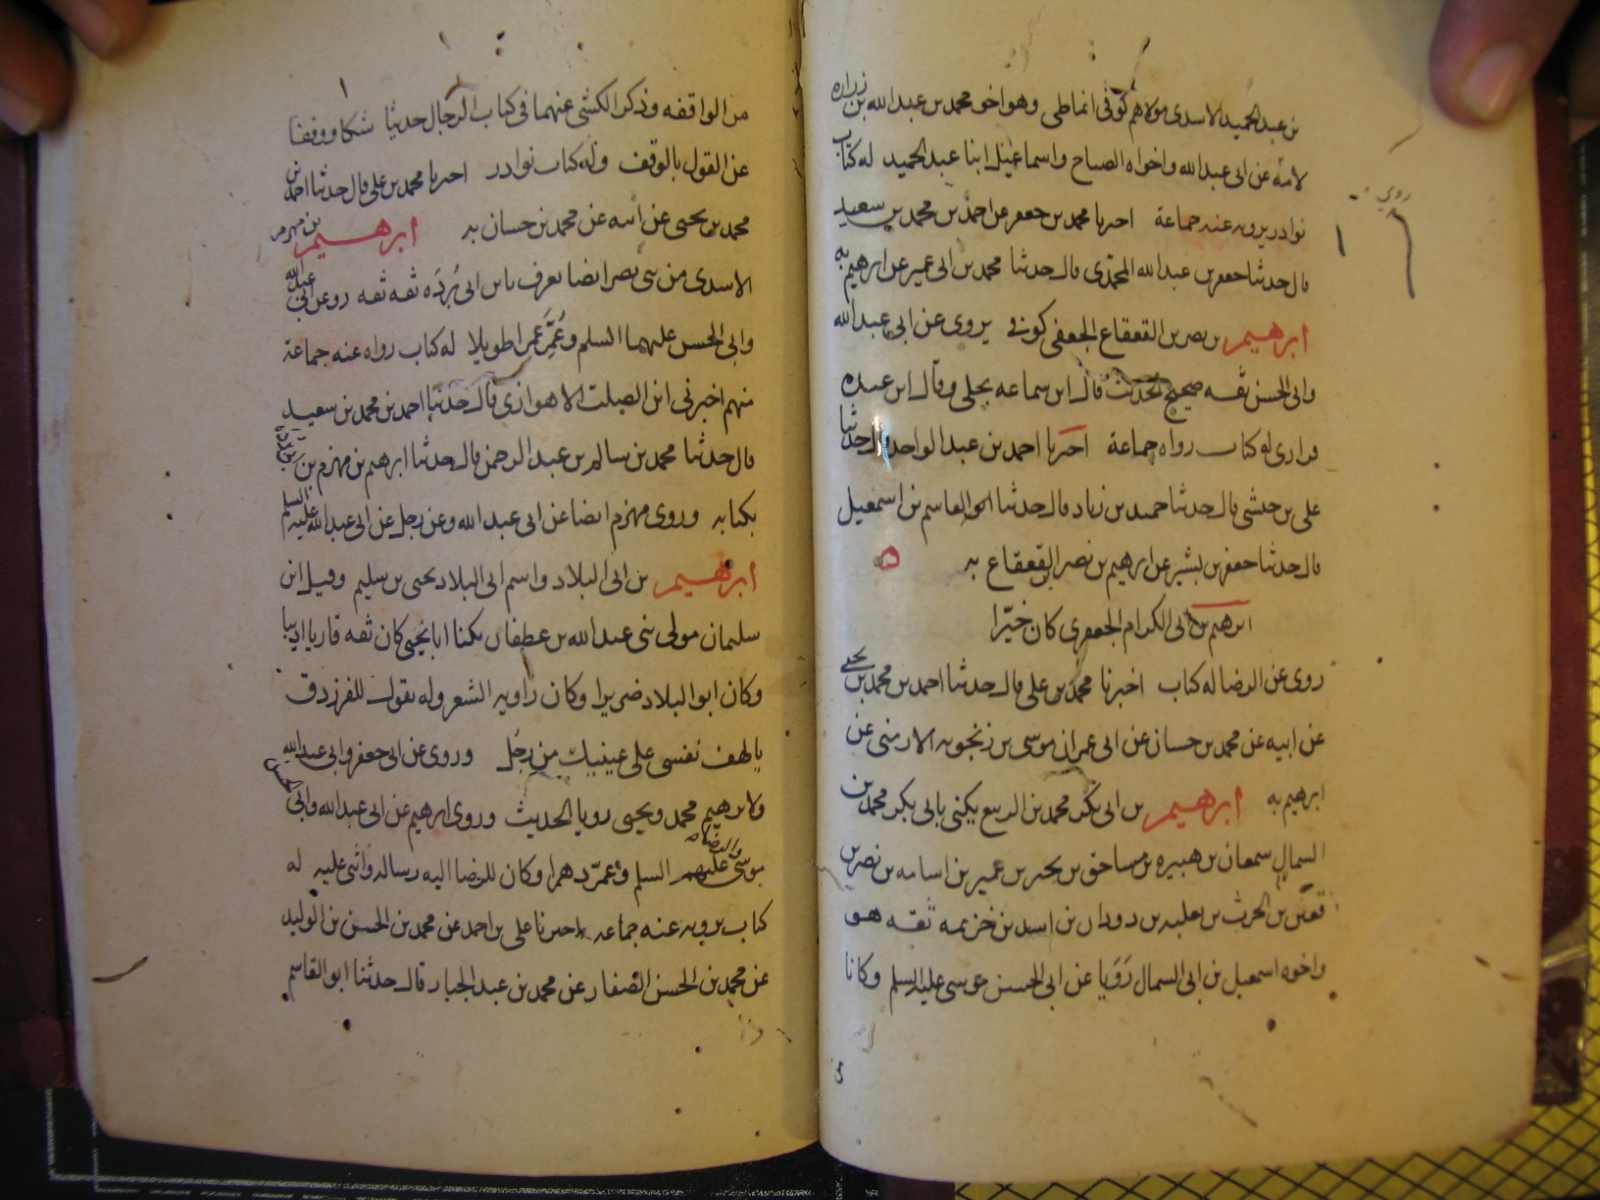 بن عبد الحميد الاسدى مولاهم كوفى انماطى وهو اخو محمد بن عبدالله بن زراره
لامه عن ابى عبدالله واخواه الصباح واسماعيل ابنا عبد الحميد له كتاب
نوادر يرويه عنه جماعة اخبرنا محمد بن جعفر عن احمد بن محمد بن سعيد
قال حدثنا جعفر بن عبدالله المحمدى قال حدثنا محمد بن ابى عمير عن ابرهيم به
ابرهيم بن نصر بن القعقاع الجعفى كوفى يروى عن ابى عبدالله
وابى الحسن ثقه صحيح الحديث قال ابن سماعه بجلى وقال ابن عبده
فزارى له كتاب رواه جماعة اخبرنا احمد بن عبد الواحد قال حدثنا
على بن حبشى قال حدثنا حميد بن زياد قال حدثنا القاسم بن اسمعيل
قال حدثنا جعفر بن بشير عن ابرهيم بن نصر القعقاع به
ابرهيم بن ابى الكرام الجعفرى كان خيّرا
روى عن الرضا له كتاب اخبرنا محمد بن على قال حدثنا احمد بن محمد بن يحيى
عن ابيه عن محمد بن حسان عن ابى عمران موسى بن زنجويه الارمنى عن
ابرهيم به ابرهيم بن ابى بكر محمد بن الربيع يكنى بابى بكر محمد بن
السمال سمعان بن هبيره بن مساحق بن بجير بن عمير بن اسامه بن نصر بن
قعين بن الحرث بن ثعلبه بن دودان بن اسد بن خزيمه ثقه هو
واخوه اسمعيل بن ابى السمال رَوَيا عن ابى الحسن موسى عليه السلم وكانا
روى
من الواقفه وذكر الكشى عنهما فى كتاب الرجال حديثا شكا ووقفا
عن القول بالوقف وله كتاب نوادر اخبرنا محمد بن على قال حدثنا احمد بن
محمد بن يحيى عن ابيه عن محمد بن حسان به ابرهيم بن مهزم
الاسدى من بنى نصر ايضا يعرف بابن ابى بُردَه ثقه ثقه روى عن ابى عبدالله
وابى الحسن عليهما السلم وعُمِّرَ عمرا طويلا له كتاب رواه عنه جماعة
منهم اخبرنى ابن الصلت الاهوازى قال حدثنا احمد بن محمد بن سعيد
قال حدثنا محمد بن سالم بن عبد الرحمن قال حدثنا ابرهيم بن مهزم بن ابى برده
بكتابه وروى مهزم ايضا عن ابى عبد الله وعن رجل عن ابى عبدالله عليه السلم
ابرهيم بن ابى البلاد واسم ابى البلاد يحيى بن سليم وقيل ابن
سليمان مولى بنى عبدالله بن غطفان يكنا ابا يحيى كان ثقه قاريا اديبا
وكان ابو البلاد ضريرا وكان راويه الشعر وله يقول الفرزدق
يا لهف نفسى على عينيك من رجُل وروى عن ابى جعفر وابى عبدالله
ولابرهيم محمد ويحيى رويا الحديث وروى ابرهيم عن ابى عبدالله وابى الحسن
موسى والرضا عليهم السلم وعمرّ دهرا وكان للرضا اليه رساله واثنى عليه له
كتاب يرويه عنه جماعه اخبرنا على بن احمد عن محمد بن الحسن بن الوليد
عن محمد بن الحسن الصفار عن محمد بن عبد الجبار قال حدثنا ابو القاسم